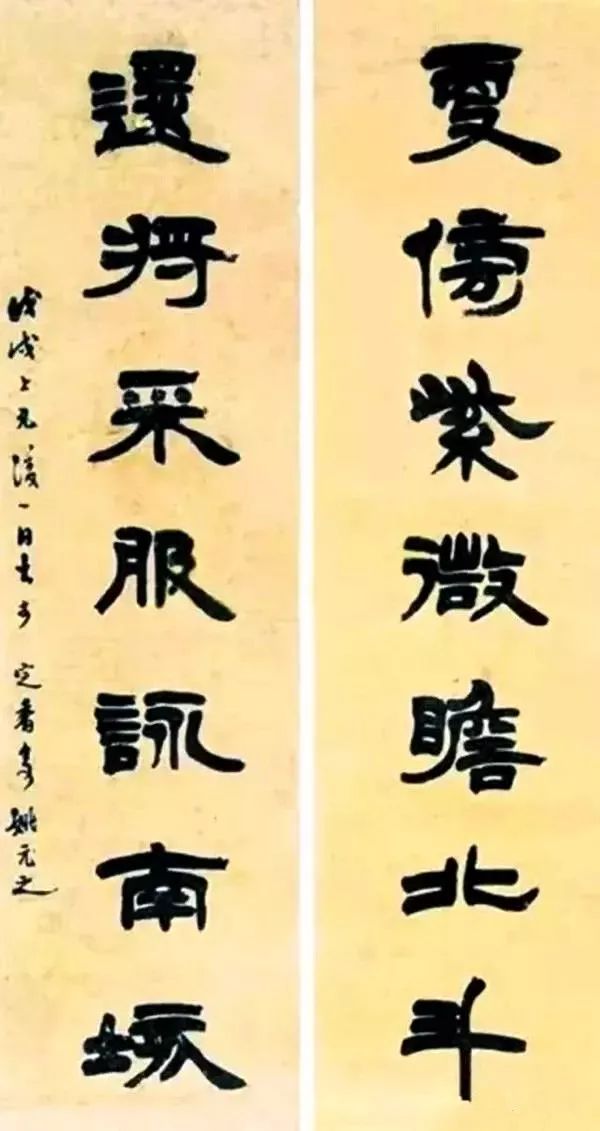 更傍紫微瞻北斗
還將采服詠南垓
戊戌上元後一日書於定香 姚元之